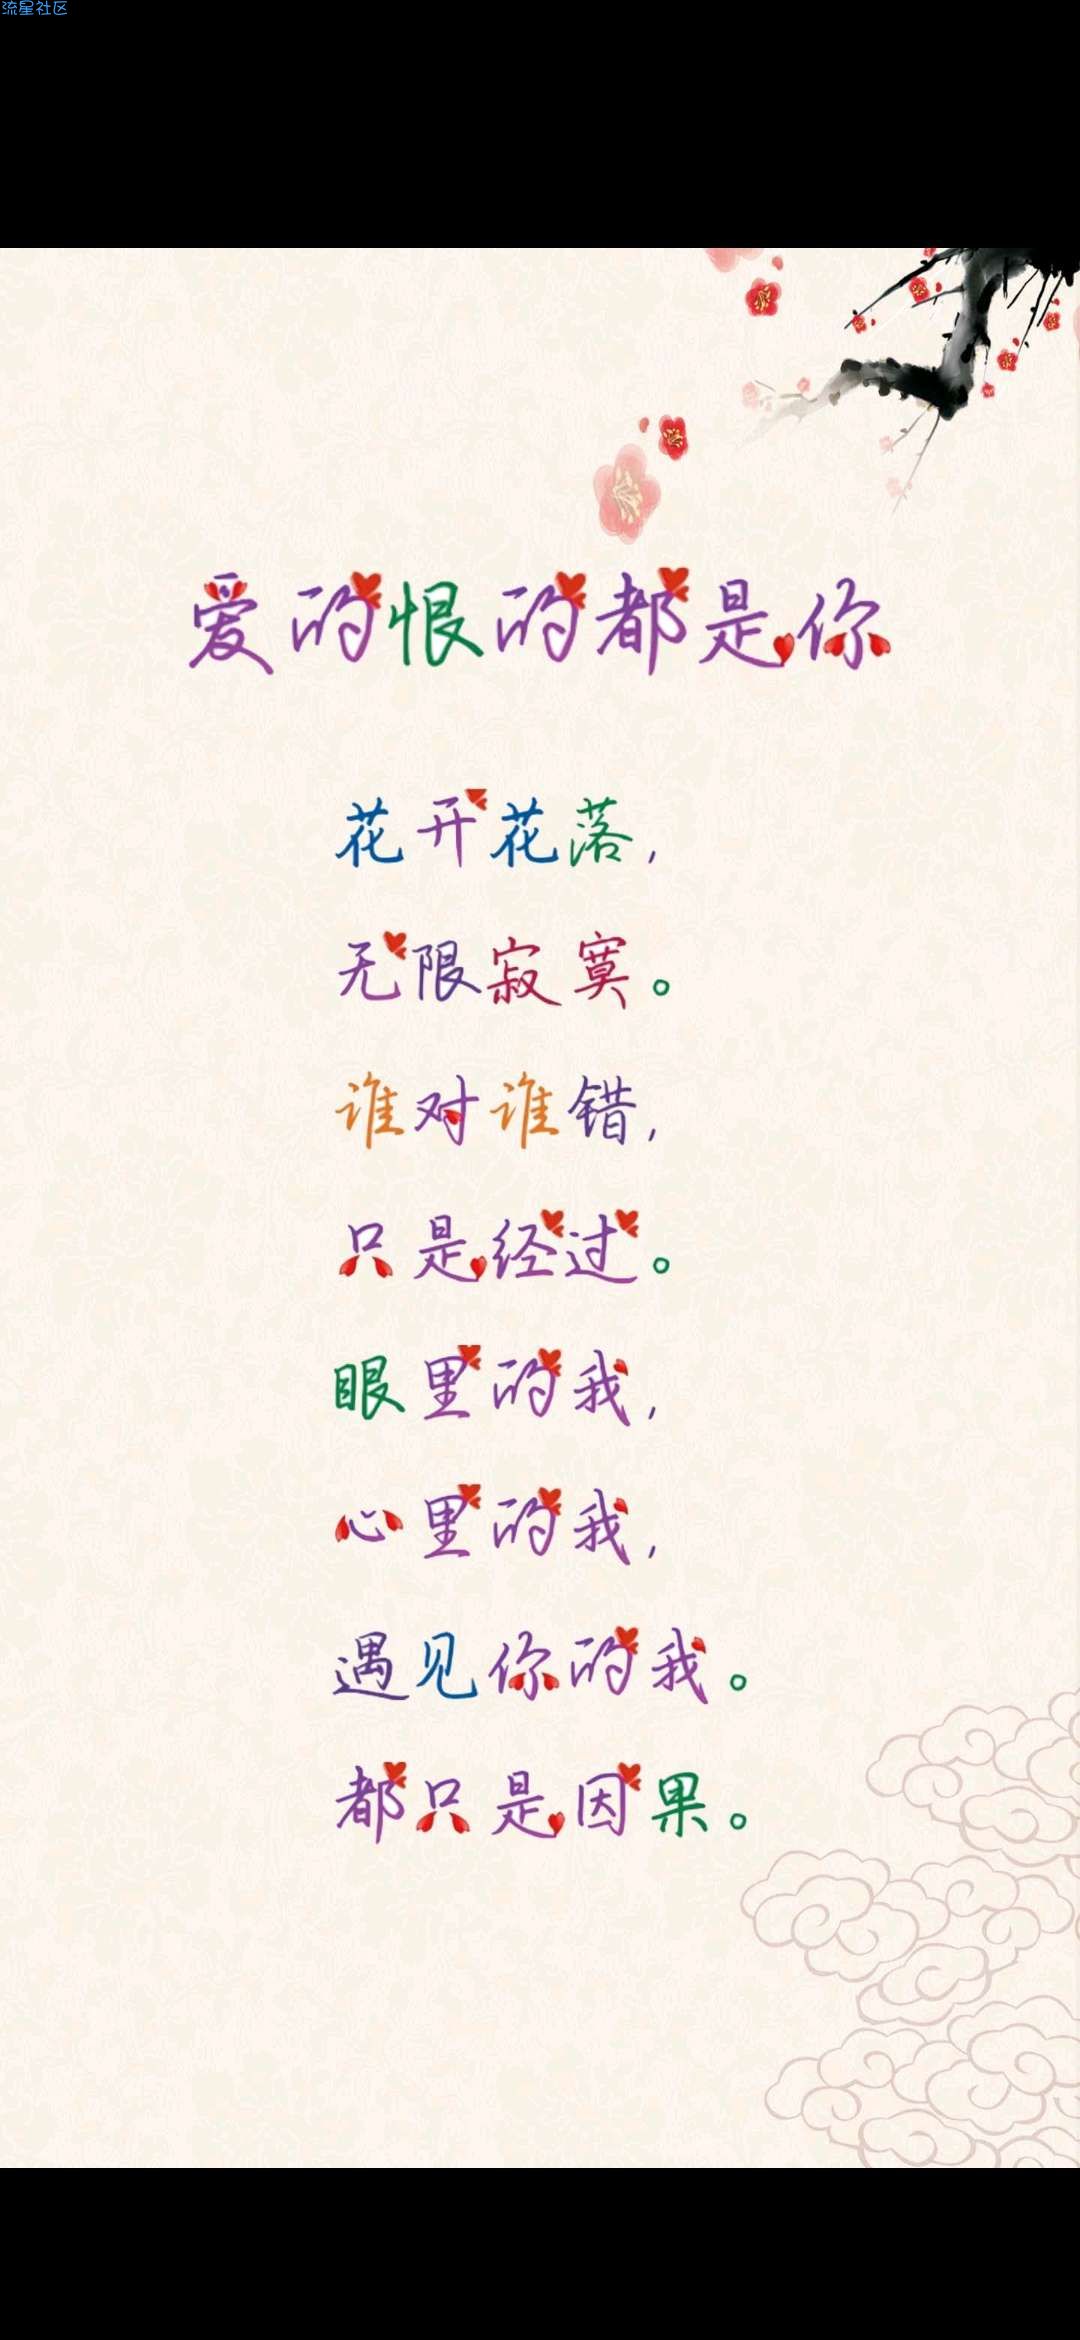 流星社区
爱的恨的都是你
花开花落，
无限寂寞。
谁对谁错，
只是经过。
眼里的我，
心里的我，
遇见你的我。
都只是因果。